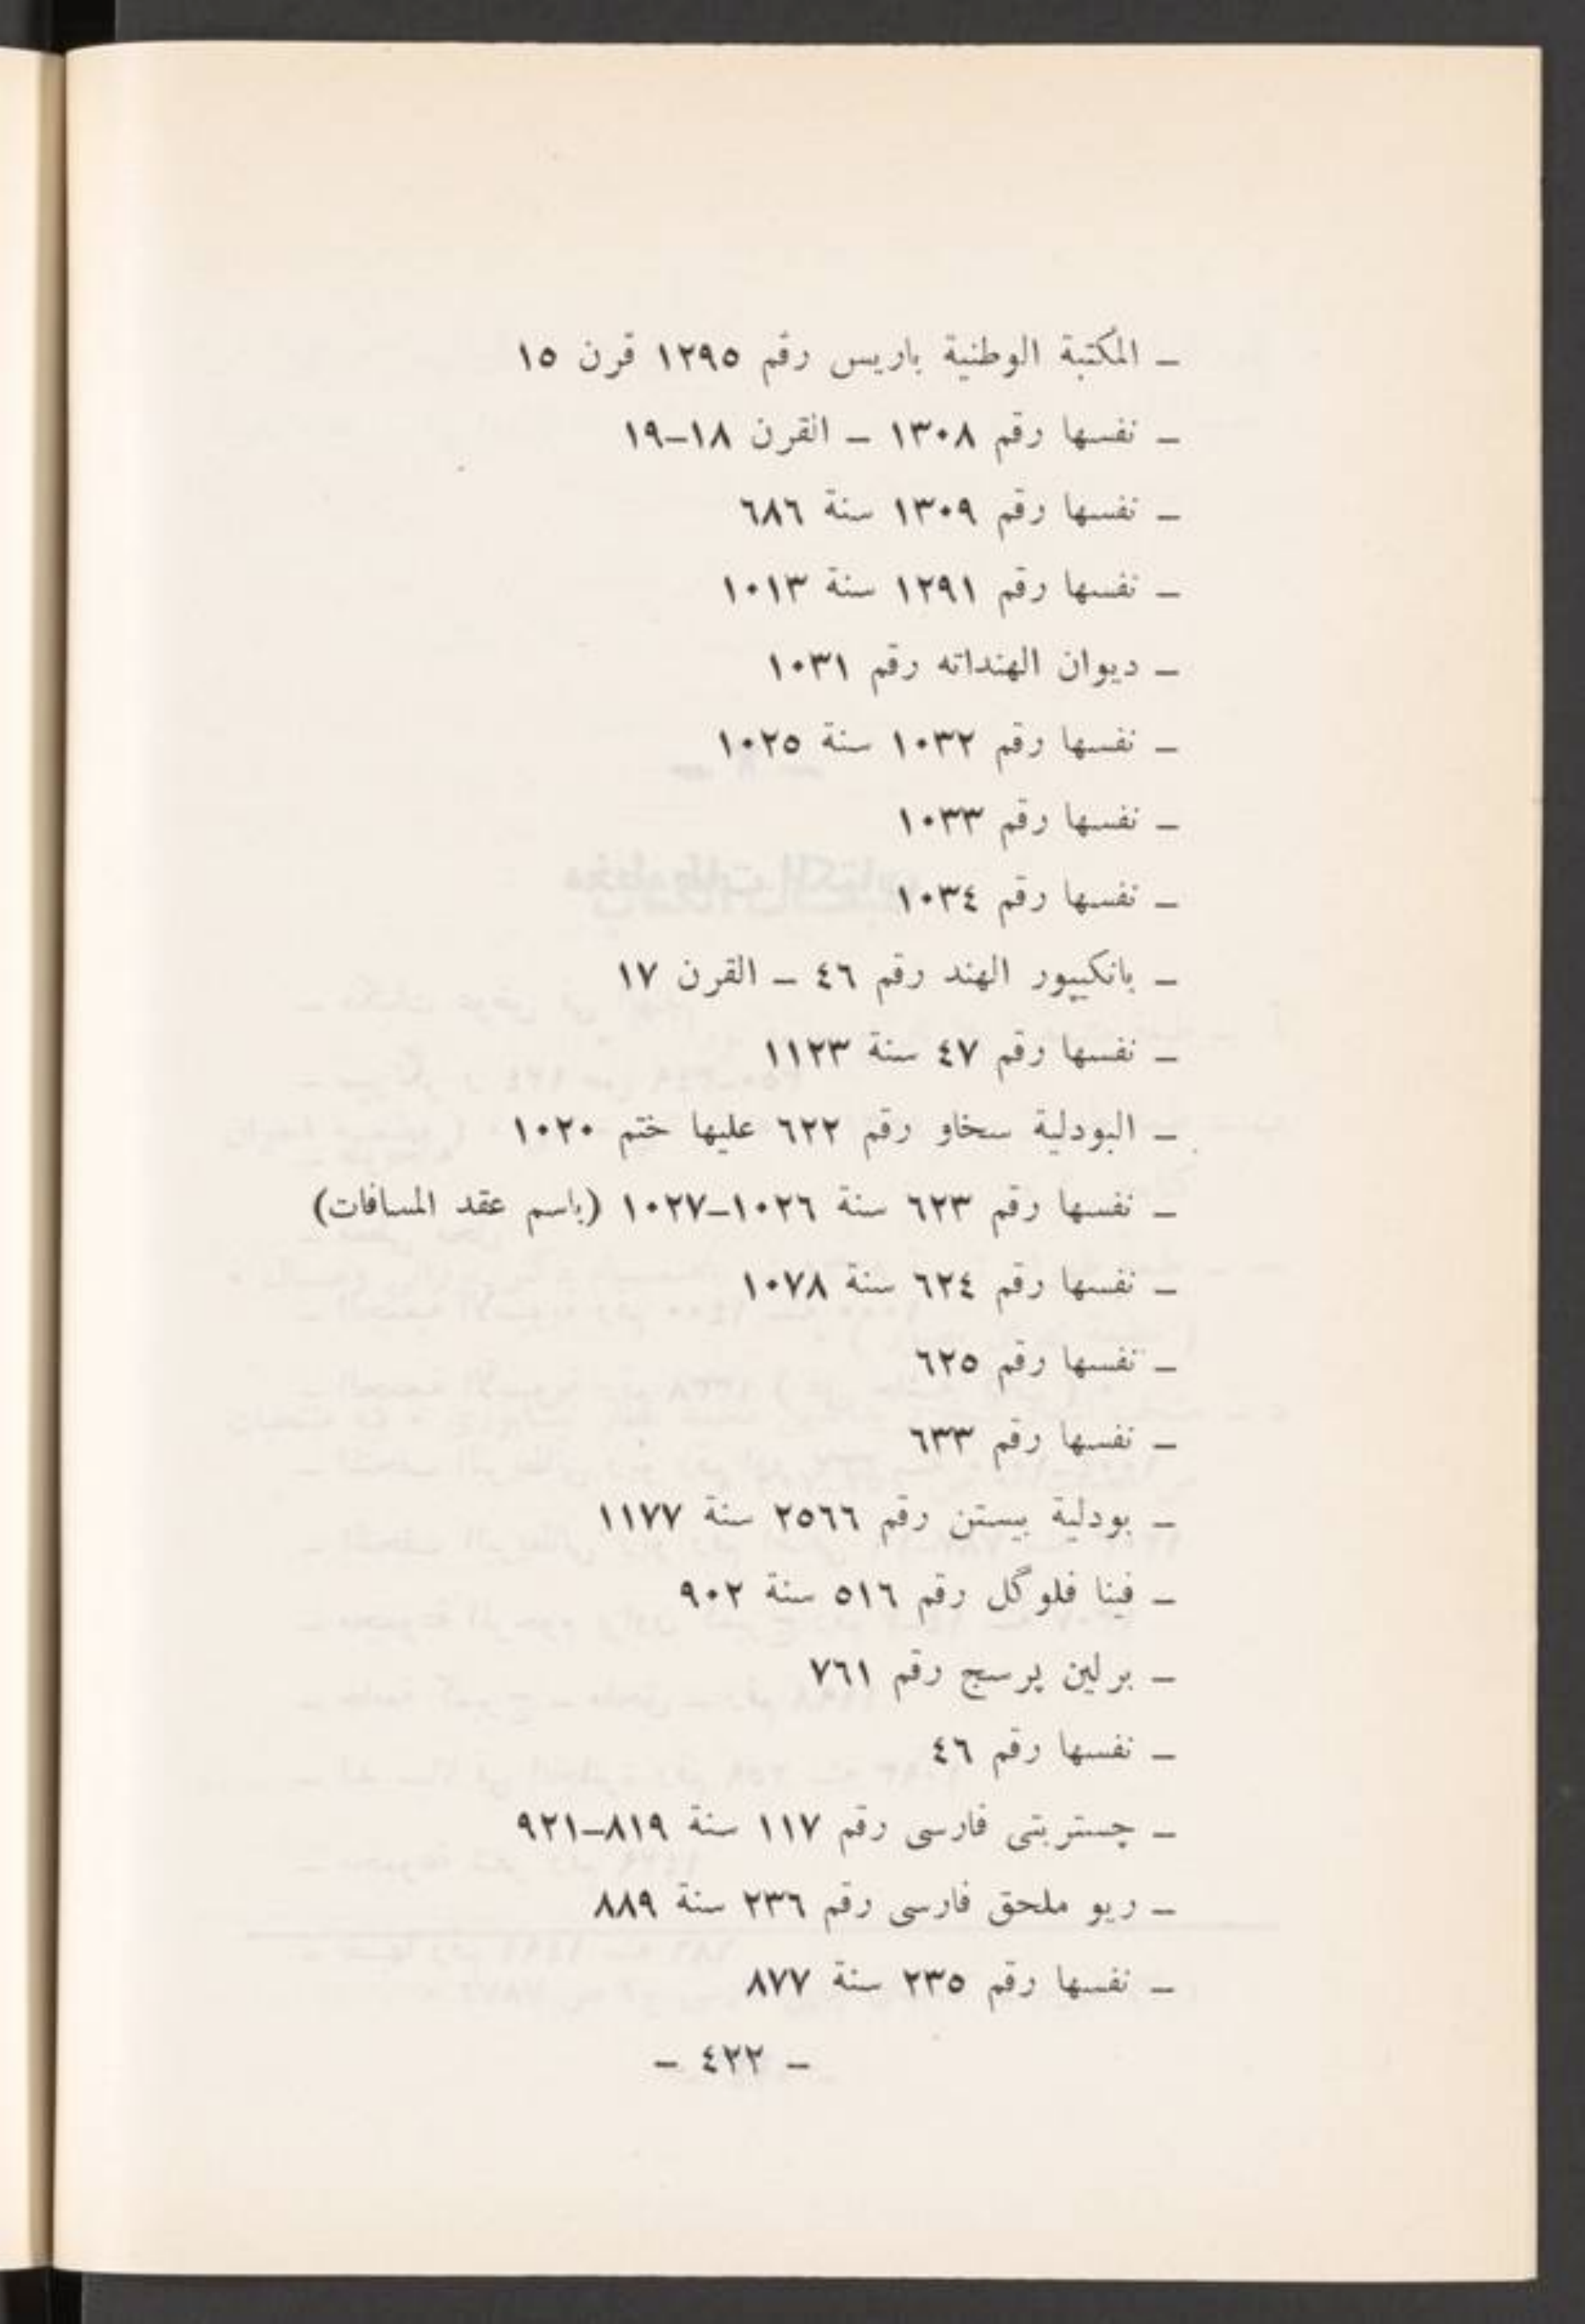 ـ المكتبة الوطنية باريس رقم ١٢٩٥ قرن ١٥
ـ نفسها رقم ١٣٠٨ ـ القرن ١٨ـ١٩
ـ نفسها رقم ١٣٠٩ سنة ٦٨٦
ـ نفسها رقم ١٢٩١ سنة ١٠١٣
ـ ديوان الهنداته رقم ١٠٣١
ـ نفسها رقم ١٠٣٢ سنة ١٠٢٥
ـ نفسها رقم ١٠٣٣
ـ نفسها رقم ١٠٣٤
ـ بانكيپور الهند رقم ٤٦ ـ القرن ١٧
ـ نفسها رقم ٤٧ سنة ١١٢٣
ـ البودلية سخاو رقم ٦٢٢ عليها ختم ١٠٢٠
ـ نفسها رقم ٦٢٣ سنة ١٠٢٦ـ١٠٢٧ (باسم عقد المسافات)
ـ نفسها رقم ٦٢٤ سنة ١٠٧٨
ـ نفسها رقم ٦٢٥
ـ نفسها رقم ٦٣٣
ـ بودلية بيستن رقم ٢٥٦٦ سنة ١١٧٧
ـ فينا فلوگل رقم ٥١٦ سنة ٩٠٢
ـ برلين پرسج رقم ٧٦١
ـ نفسها رقم ٤٦
ـ چستربتى فارسى رقم ١١٧ سنة ٨١٩ـ٩٢١
ـ ريو ملحق فارسى رقم ٢٣٦ سنة ٨٨٩
ـ نفسها رقم ٢٣٥ سنة ٨٧٧
ـ ٤٢٢ ـ